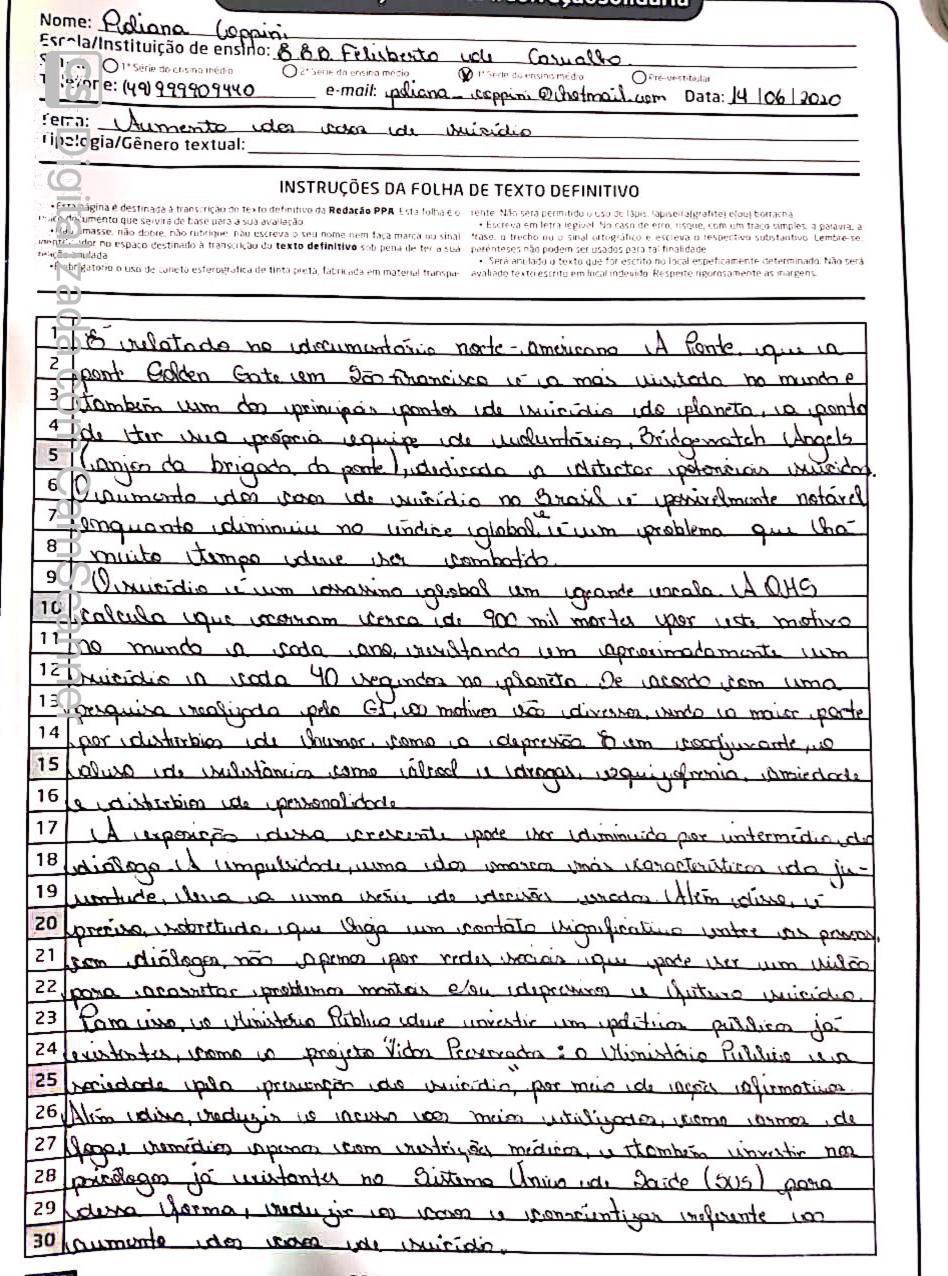 Nome: Poliana Coppini
Escola/Instituição de ensino: E.E.B. Felisberto de Carvalho
1ª Série do ensino médio 2ª Série do ensino médio Pré-vestibular
(49) 999909440 e-mail: poliana_coppini@hotmail.com Data: 14/06/2020
Tema: Aumento dos casos de suicídio
Tipologia/Gênero textual:
INSTRUÇÕES DA FOLHA DE TEXTO DEFINITIVO
• Esta página é destinada à transcrição do texto definitivo da Redação PPA. Esta folha é o
documento que servirá de base para a sua avaliação
amasse, não dobre, não rubrique, não escreva o seu nome nem faça marca ou sinal
no espaço destinado à transcrição do texto definitivo sob pena de ter a sua
anulada
obrigatório o uso de caneta esferográfica de tinta preta, fabricada em material transpa-
rente. Não será permitido o uso de lápis, lapiseira(grafite) e(ou) borracha
• Escreva em letra legível. No caso de erro, risque, com um traço simples, a palavra, a
frase, o trecho ou o sinal ortográfico e escreva o respectivo substantivo. Lembre-se:
parênteses não podem ser usados para tal finalidade
• Será anulado o texto que for escrito no local especificamente determinado. Não será
avaliado texto escrito em local indevido. Respeite rigorosamente as margens.
1 É relatado no documentário norte-americano A Ponte, que a
2 pont Golden Gate em São Francisco é a mas visitada no mundo e
3 também um dos principais pontos de suicídio do planeta, a ponto
4 de ter sua própria equipe de voluntários, Bridgewatch Angels
5 (anjos da brigada da ponte), dedicada a detectar potenciais suicidas.
6 O aumento dos casos de suicídio no Brasil é possivelmente notável
7 enquanto diminuiu no índice global, e é um problema que há
8 muito tempo deve ser combatido.
9 O suicídio é um assassino global em grande escala. A OMS
10 calcula que ocorram cerca de 900 mil mortes por este motivo
11 no mundo a cada ano, resultando em aproximadamente um
12 suicídio a cada 40 segundos no planeta. De acordo com uma
13 pesquisa realizada pelo G1, os motivos são diversos, sendo a maior parte
14 por distúrbios de humor, como a depressão. E em coadjuvante, o
15 abuso de substância como álcool e drogas, esquizofrenia, ansiedade
16 e distúrbios de personalidade.
17 A exposição dessa crescente pode ser diminuída por intermédio do
18 diálogo. A impulsidade, uma das marcas mais características da ju-
19 ventude, leva a uma série de decisões erradas. Além disso, é
20 preciso, sobretudo, que haja um contato significativo entre as pessoas,
21 com diálogos, não apenas por redes sociais, que pode ser um vilão
22 para acarretar problemas mentais e/ou depressivos e futuro suicídio.
23 Para isso, o Ministério Público deve investir em políticas públicas já
24 existentes, como o projeto "Vidas Preservadas: o Ministério Público e a
25 sociedade pela prevenção do suicídio", por meio de ações afirmativas.
26 Além disso, reduzir o acesso aos meios utilizados, como armas de
27 fogo, e remédios apenas com restrições médicas, e também investir nos
28 psicólogos já existentes no Sistema Único de Saúde (SUS) para
29 dessa forma, reduzir os casos e conscientizar referente ao
30 aumento dos casos de suicídio.
Digitalizada com CamScanner
CS